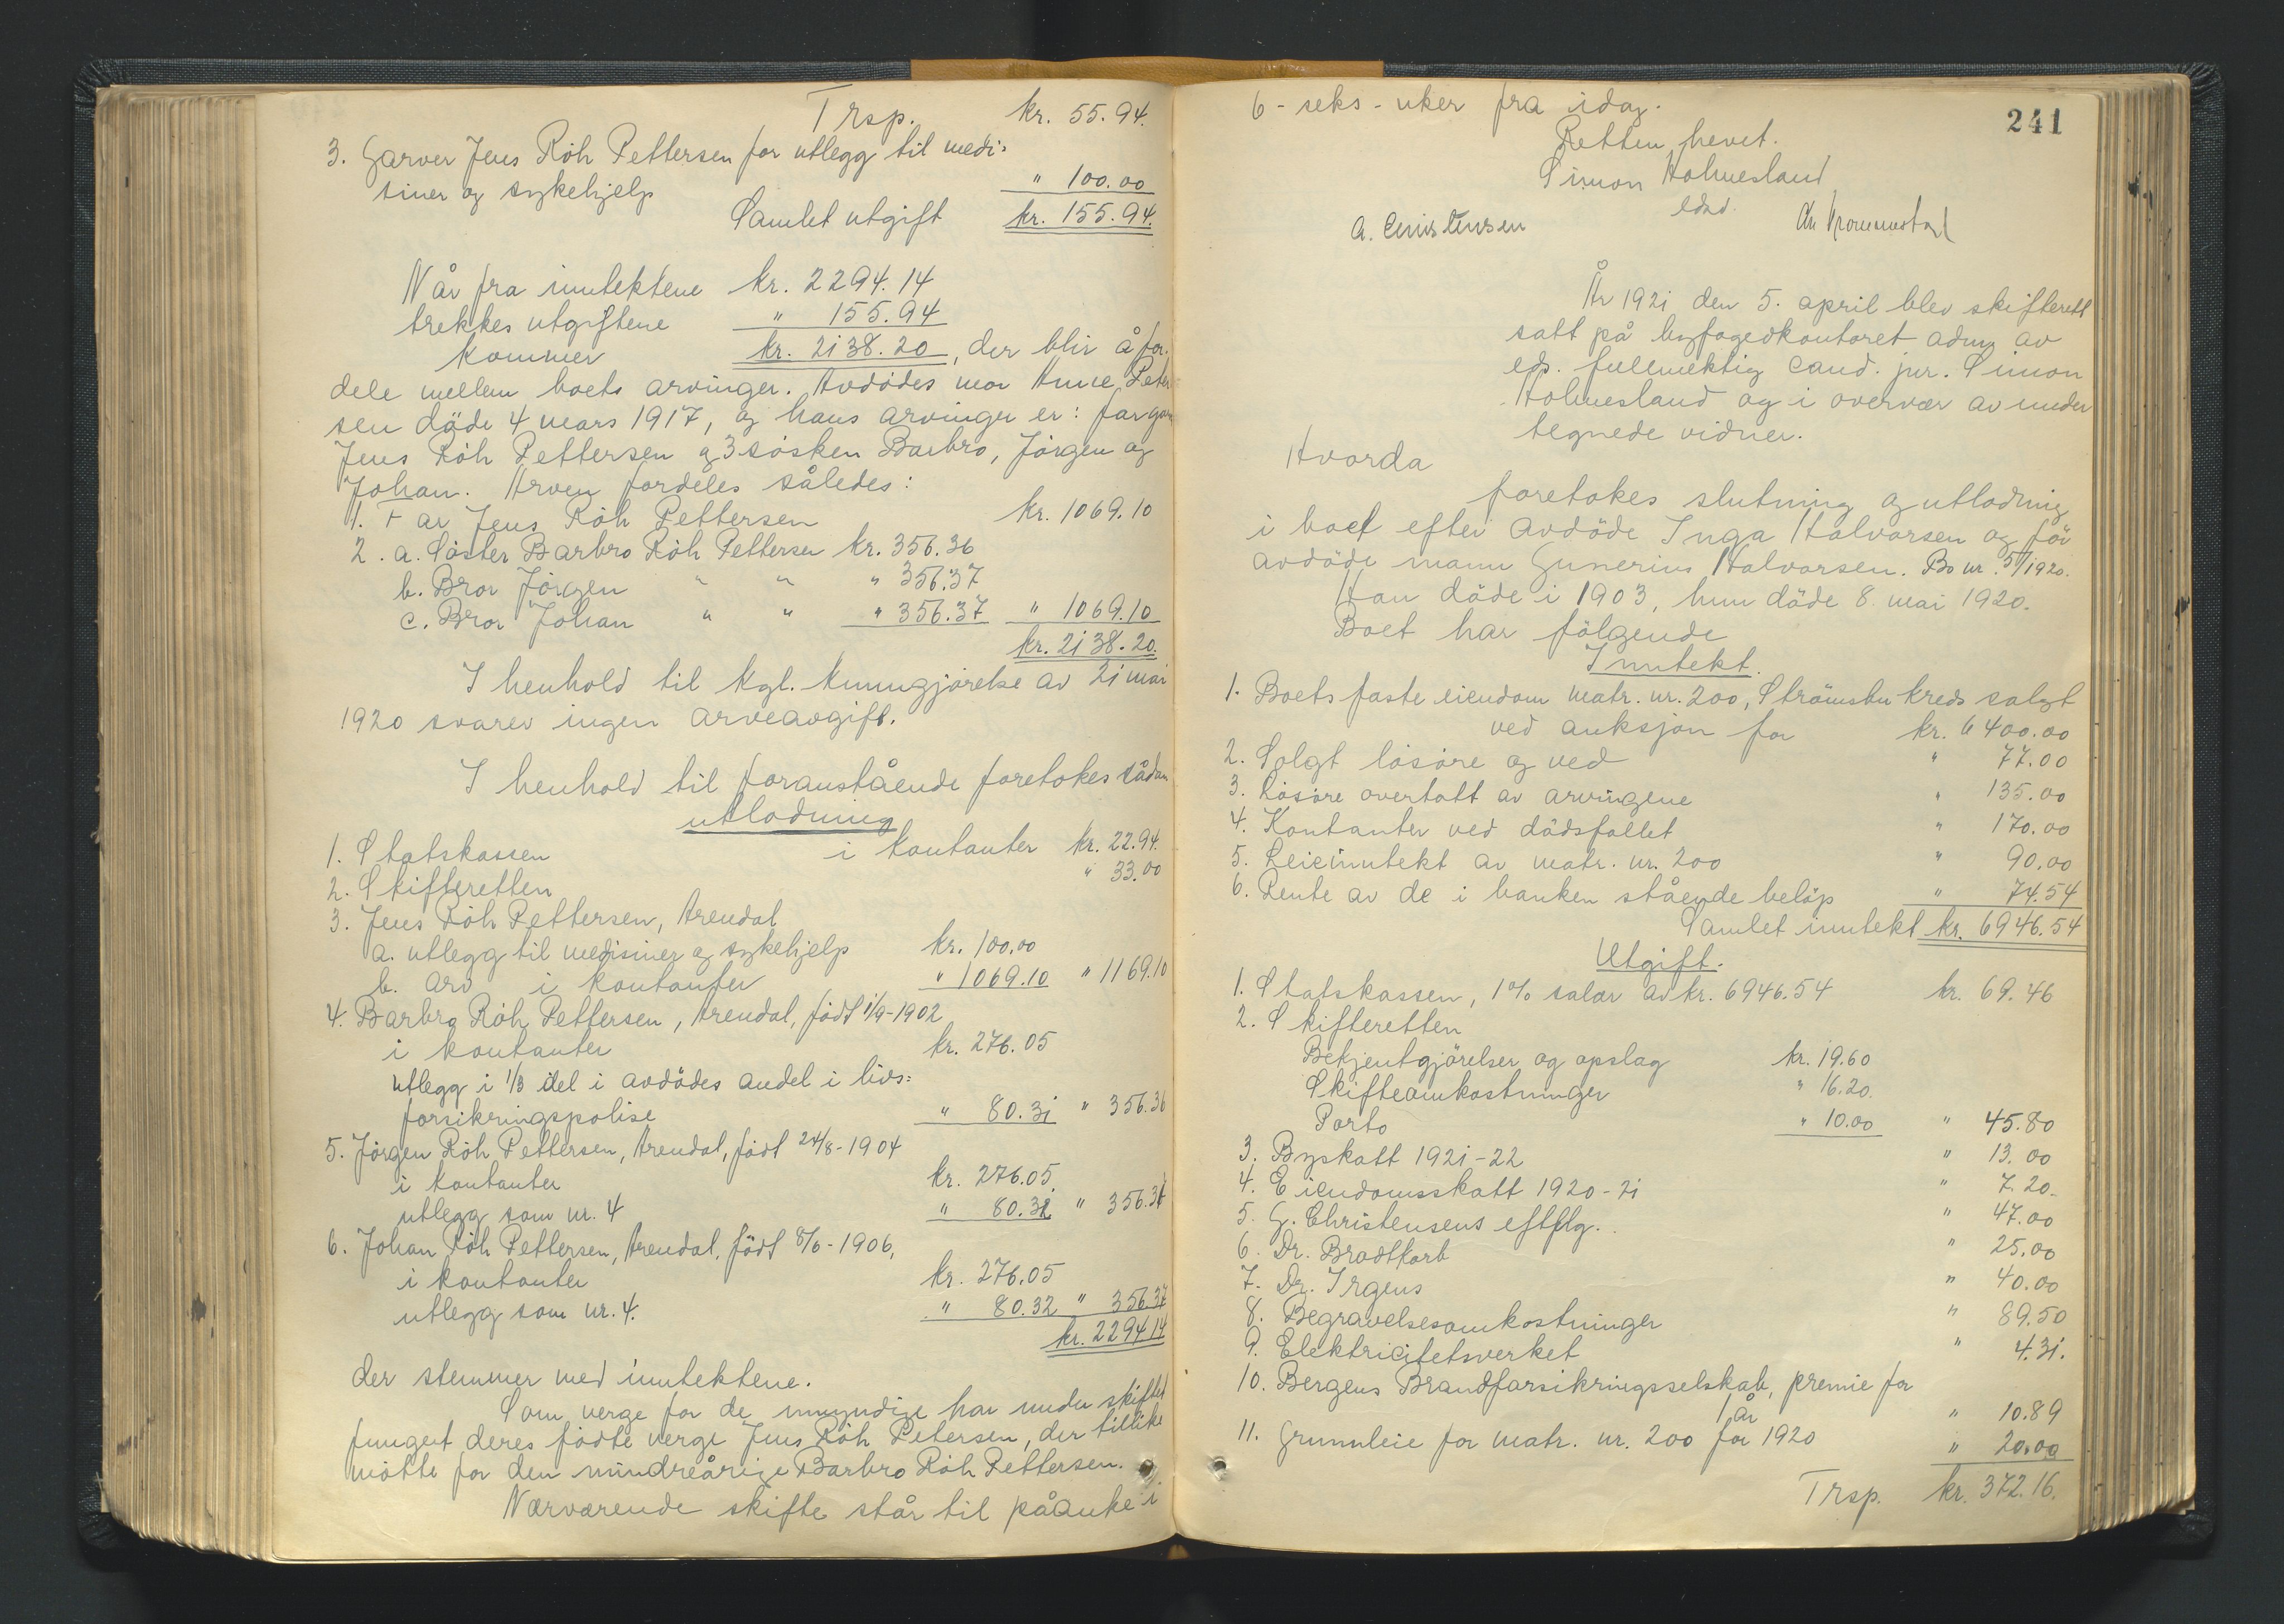 Trsp. kr. 55.94.
3. Garver Jens Röh Pettersen for utlegg til medi=
siner og sykehjelp " 100.00
Samlet utgift kr. 155.94.
Når fra inntektene kr. 2294.14
trekkes utgiftene " 155.94
kommer kr. 2138.20, der blir å for-
dele mellem boets arvinger. Avdödes mor Anne Peter
sen döde 4 mars 1917, og hans arvinger er: far gar
Jens Röh Pettersen og 3 sösken Barbro, Jörgen og
Johan. Arven fordeles således:
1. Far Jens Röh Pettersen kr. 1069.10
2. a. Söster Barbro Röh Pettersen kr. 356.36
b. Bror Jörgen " " " 356.37
c. Bror Johan " " " 356.37 " 1069.10
kr. 2138.20.
I henhold til kgl. kunngjörelse av 21 mai
1920 svares ingen arveavgift.
I henhold til foranstående foretokes sådan
utlodning
1. Statskassen i kontanter kr. 22.94.
2. Skifteretten " 33.00
3. Jens Röh Pettersen, Arendal
a. utlegg til medisiner og sykehjelp kr. 100.00
b. arv i kontanter " 1069.10 " 1169.10
4. Barbro Röh Pettersen, Arendal, född 1/9-1902
i kontanter kr. 276.05
utlegg i 1/3 del i avdödes andel i livs=
forsikringspolise " 80.31 " 356.36
5. Jörgen Röh Pettersen, Arendal, född 24/8-1904
i kontanter kr. 276.05.
utlegg som nr. 4 " 80.32 " 356.37
6. Johan Röh Pettersen, Arendal, född 8/6-1906,
i kontanter kr. 276.05
utlegg som nr. 4. " 80.32 " 356.37
kr. 2294 14
der stemmer med inntektene.
Som verge for de umyndige har under skiftet
fungert deres födte verge Jens Röh Petersen, der tillike
mötte for den mindreårige Barbro Röh Pettersen.
Nærværende skifte står til påanke i
241
6 - seks - uker fra idag.
Retten hevet.
Simon Holmesland
edsd.
A. Christensen
År 1921 den 5. april blev skifterett
satt på byfogedkontoret adm. av
eds. fullmektig cand. jur. Simon
Holmesland og i overvær av under
tegnede vidner.
Hvorda
foretokes slutning og utlodning
i boet efter avdöde Inga Halvorsen og för
avdöde mann Gunerius Halvorsen. Bo nr. 5/1920.
Han döde i 1903, hun döde 8. mai 1920.
Boet har fölgende
Inntekt.
1. Boets faste eiendom matr. nr. 200, Strömsbu kreds solgt
ved auksjon for kr. 6400.00
2. Solgt lösöre og ved " 77.00
3. Lösöre overtatt av arvingene " 135.00
4. Kontanter ved dödsfallet " 170.00
5. Leieinntekt av matr. nr. 200 " 90.00
6. Rente av de i banken stående belöp " 74.54
Samlet inntekt kr. 6946.54
Utgift.
1. Statskassen, 1% salær av kr. 6946.54 kr. 69.46
2. Skifteretten
Bekjentgjörelser og opslag kr. 19.60
Skifteomkostninger " 16.20.
Porto " 10.00 " 45.80
3. Byskatt 1921-22 " 13.00
4. Eiendomsskatt 1920-21 " 7.20.
5. G. Christensens eftflg. " 47.00
6. Dr. Brodtkorb " 25.00
7. Dr. Irgens " 40.00
8. Begravelsesomkostninger " 89.50
9. Elektricitetsverket " 4.31.
10. Bergens Brandforsikringsselskab, premie for
1 år " 10.89
11. Grunnleie for matr. nr. 200 for 1920 " 20.00
Trsp. kr. 372.16.